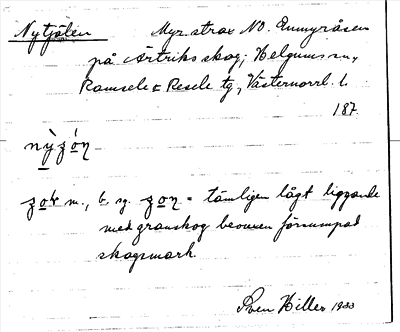 Nytjälen Myr strax NO. Ennyråsen
på Ärtriks skog; Helgums sn,
Ramsele o Resele tg, Västernorrl. l.
187
nỳʒóŋ
ʒok m., b. sg. ʒoŋ = tämligen lågt liggande
med granskog bevuxen försumpad
skogsmark.
Sven Hiller 1933